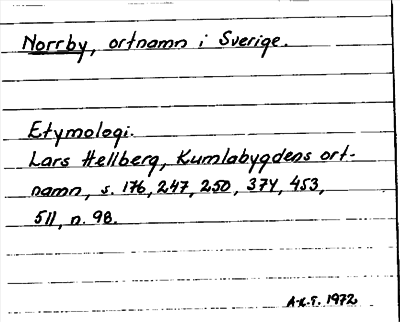 Norrby, ortnamn i Sverige.
Etymologi.
Lars Hellberg, Kumlabygdens ort-
namn, s. 176, 247, 250, 374, 453,
511, n. 98.
1972